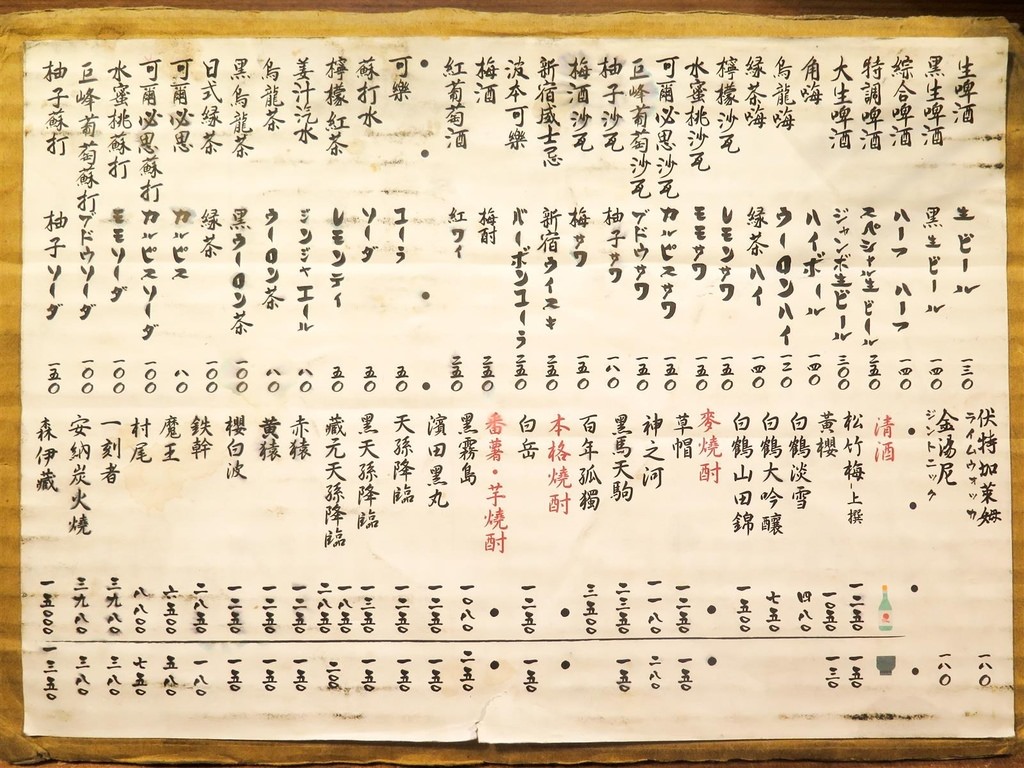 生啤酒 生ビール 一三〇
黑生啤酒 黑生ビール 一四〇
綜合啤酒 ハーフ ハーフ 一四〇
特調啤酒 スペシャル生ビール 二五〇
大生啤酒 ジャンボ生ビール 三〇〇
角嗨 ハイボール 一四〇
烏龍嗨 ウーロンハイ 一二〇
緑茶嗨 緑茶ハイ 一四〇
檸檬沙瓦 レモンサワ 一五〇
水蜜桃沙瓦 モモサワ 一五〇
可爾必思沙瓦 カルピスサワ 一五〇
巨峰葡萄沙瓦 ブドウサワ 一五〇
柚子沙瓦 柚子サワ 一八〇
梅酒沙瓦 梅サワ 一五〇
新宿威士忌 新宿ウイスキ 二五〇
波本可樂 バーボンコーラ 二五〇
梅酒 梅酎 二五〇
紅葡萄酒 紅ワイ 二五〇
可樂 コーラ 五〇
蘇打水 ソーダ 五〇
檸檬紅茶 レモンティ 五〇
姜汁汽水 ジンジャエール 八〇
烏龍茶 ウーロン茶 八〇
黑烏龍茶 黑ウーロン茶 一〇〇
日式緑茶 緑茶 一〇〇
可爾必思 カルピス 八〇
可爾必思蘇打 カルピスソーダ 一〇〇
水蜜桃蘇打 モモソーダ 一〇〇
巨峰葡萄蘇打 ブドウソーダ 一〇〇
柚子蘇打 柚子ソーダ 一五〇
伏特加萊姆 ライムウォッカ 一八〇
金湯尼 ジントニック 一八〇
清酒
松竹梅-上撰 一二五〇 一五〇
黃櫻 一〇五〇 一三〇
白鶴淡雪 四八〇
白鶴大吟釀 七五〇
白鶴山田錦 一五〇〇
麥燒酎
草帽 一二五〇 一五〇
神之河 一一八〇 二八〇
黑馬天駒 二三五〇 一五〇
百年孤獨 三五〇〇
本格燒酎
白岳 一二五〇 一五〇
番薯·芋燒酎
黑霧島 一〇八〇 二五〇
濱田黑丸 一二五〇 一五〇
天孫降臨 一二五〇 一五〇
黑天孫降臨 一三五〇 一五〇
藏元天孫降臨 一八五〇 二八五〇 二〇〇
赤猿 一二五〇 一五〇
黃猿 一二五〇 一五〇
櫻白波 一二五〇 一五〇
鉄幹 二八五〇 一八〇
魔王 六五〇〇 五八〇
村尾 八八〇〇 七五〇
一刻者 三九八〇 三八〇
安納炭火燒 三九八〇 三八〇
森伊藏 一五〇〇〇 一三五〇